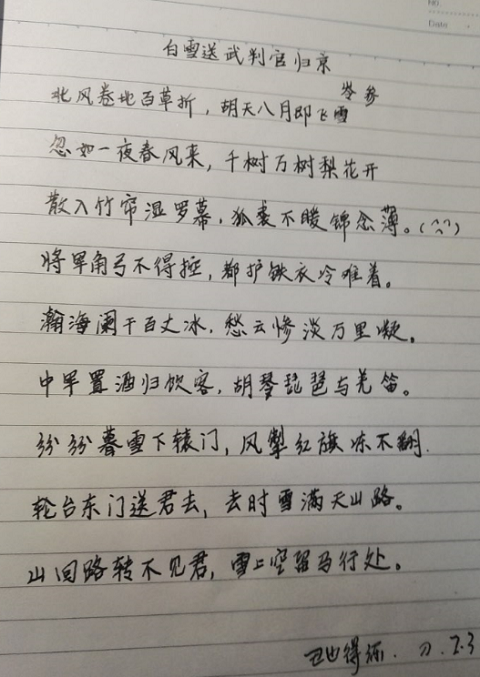 No.
Date
白雪送武判官归京
岑参
北风卷地百草折，胡天八月即飞雪
忽如一夜春风来，千树万树梨花开
散入竹帘湿罗幕，狐裘不暖锦衾薄。
将军角弓不得控，都护铁衣冷难着。
瀚海阑干百丈冰，愁云惨淡万里凝。
中军置酒归饮客，胡琴琵琶与羌笛。
纷纷暮雪下辕门，风掣红旗冻不翻.
轮台东门送君去，去时雪满天山路。
山回路转不见君，雪上空留马行处。